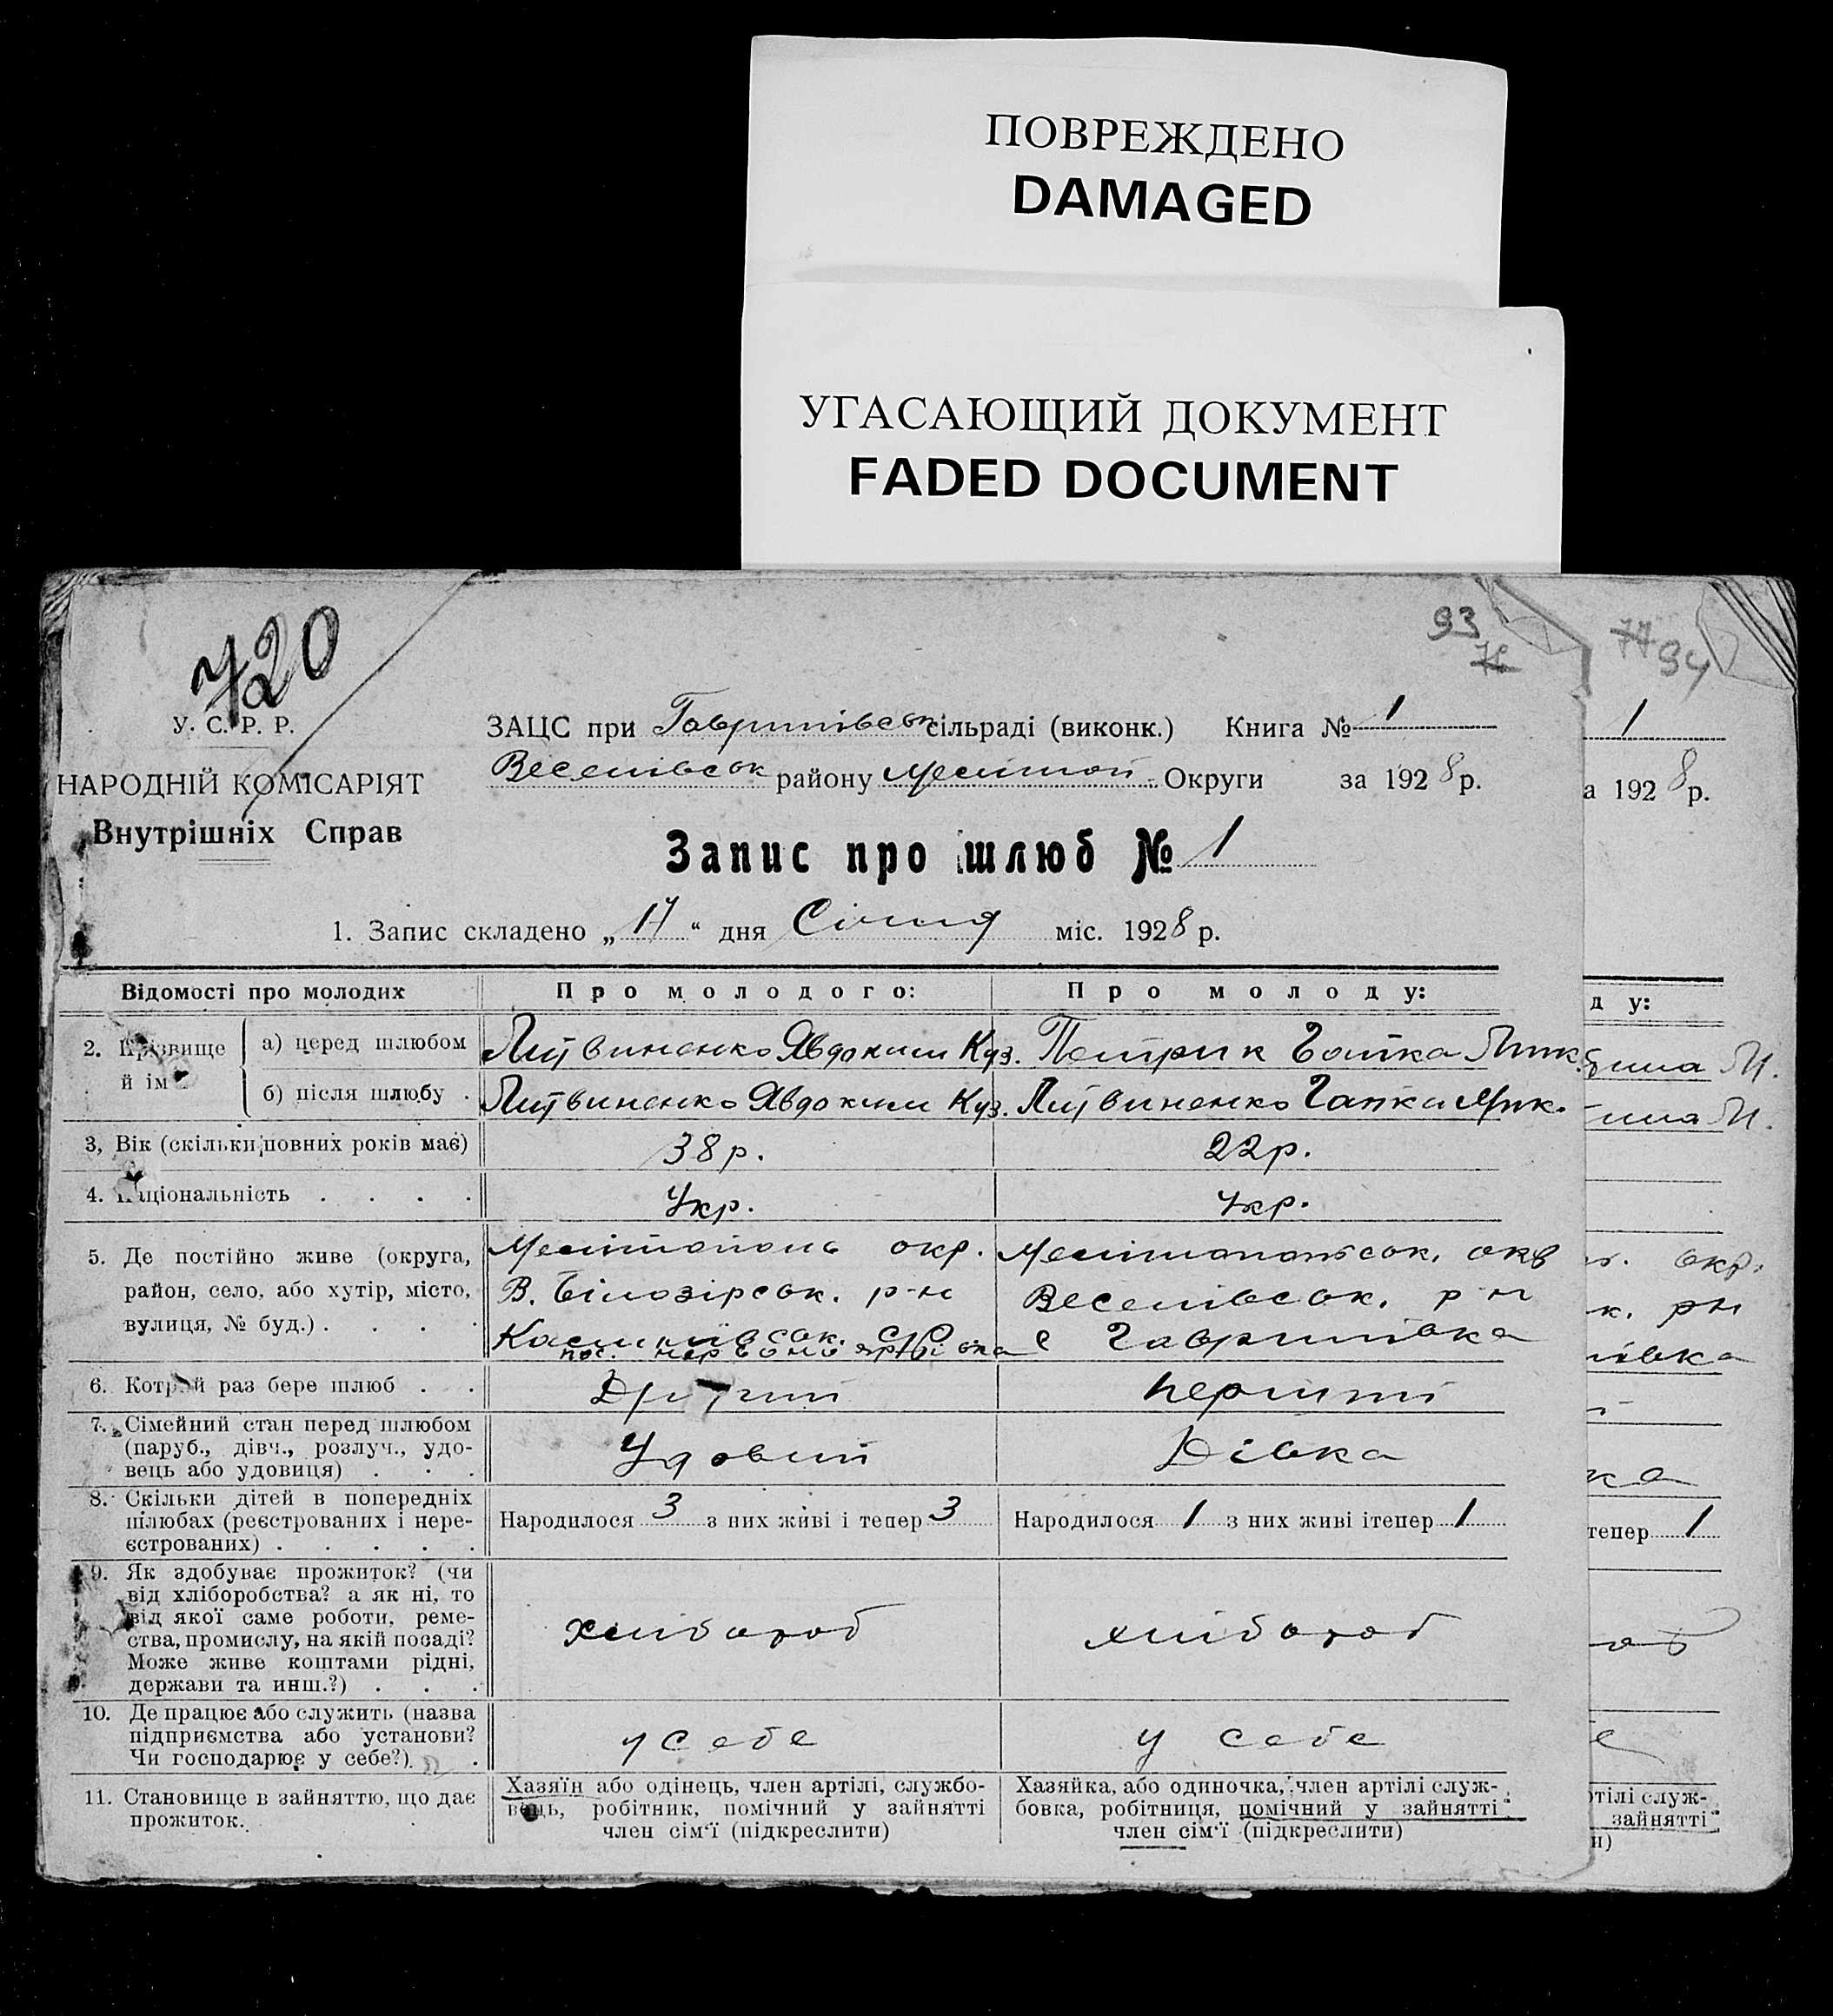 ПОВРЕЖДЕНО
DAMAGED
УГАСАЮЩИЙ ДОКУМЕНТ
FADED DOCUMENT
720
93
76
77 94
У. С. Р. Р.
НАРОДНІЙ КОМІСАРІЯТ
Внутрішніх Справ
ЗАЦС при Гаврилівськ сільраді (виконк.) Книга № 1
Веселівськ району Мелітоп. Округи за 1928 р.
Запис про шлюб № 1
1. Запис складено „17“ дня Січня міс. 1928 р.
1
а 1928 р.
Відомості про молодих
Про молодого:
Про молоду:
д у:
2. Прізвище й ім
а) перед шлюбом
Литвиненко Явдоким Куз.
Петрик Гапка Мик.
б) після шлюбу .
Литвиненко Явдоким Куз.
Литвиненко Гапка Мик.
3, Вік (скільки повних років має)
38 р.
22 р.
4. Національність . . . .
Укр.
Укр.
5. Де постійно живе (округа,
район, село, або хутір, місто,
вулиця, № буд.) . . . .
Мелітополь окр.
В. Білозірськ. р-н
Мелітопольськ. окр
Веселівськ. р-н
с Гаврилівка
окр.
к. рн
івка
6. Котрий раз бере шлюб . .
Другий
перший
7. Сімейний стан перед шлюбом
(паруб., дівч., розлуч., удо-
вець або удовиця) . . .
Удовий
Дівка
ка
8. Скільки дітей в попередніх
шлюбах (реєстрованих і нере-
єстрованих) . . . . .
Народилося 3 з них живі і тепер 3
Народилося 1 з них живі ітепер 1
тепер 1
9. Як здобуває прожиток? (чи
від хліборобства? а як ні, то
від якої саме роботи, реме-
ства, промислу, на якій посаді?
Може живе коштами рідні,
держави та инш.?) . . .
хлібороб
хлібороб
об
10. Де працює або служить (назва
підприємства або установи?
Чи господарює у себе?). .
у себе
у себе
е
11. Становище в зайняттю, що дає
прожиток.
Хазяїн або одінець, член артілі, службо-
вець, робітник, помічний у зайнятті
член сім'ї (підкреслити)
Хазяйка, або одиночка, член артілі служ-
бовка, робітниця, помічний у зайнятті
член сім'ї (підкреслити)
ртілі служ-
зайнятті
и)